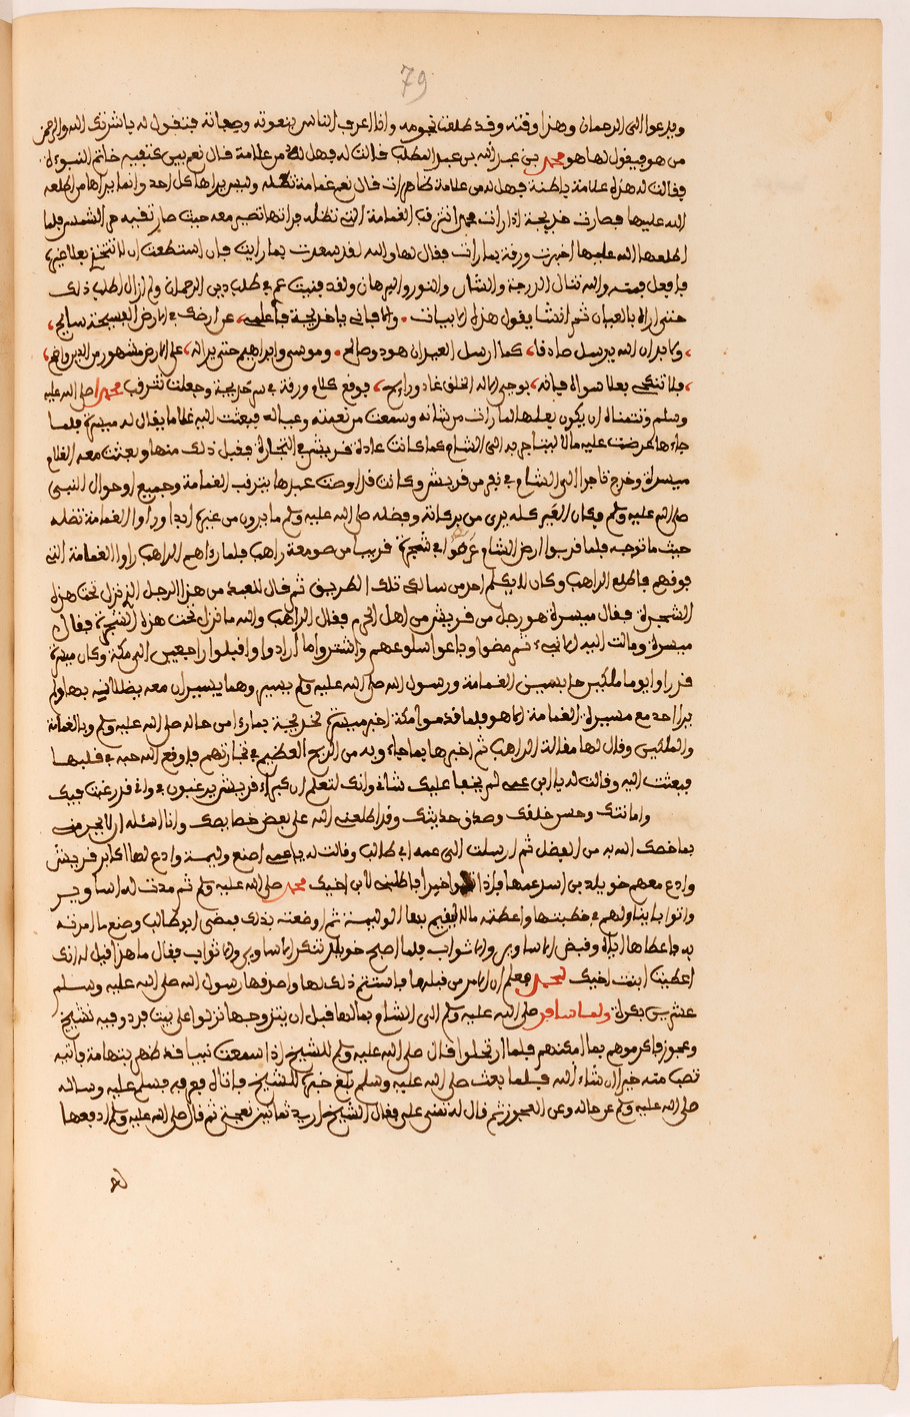 79
ويدعوا الى الرحمان وهذا وقته وقد طلعت نجومه وانا اعرف الناس بنعوته وصفاته فتقول له ناشدتك الله والرحمن
من هو فيقول لها هو محمد بن عبد الله بن عبد المطلب قالت له فهل له من علامة قال نعم بين كتفيه خاتم النبوءة
فقالت له هذه علامة باطنة فهل له من علامة ظاهرة قال نعم غمامة تظله وليس يراها كل احد وانما يراها من اطلعه
الله عليها فصارت خديجة اذا رات محمدا ترقب الغمامة التي تظله فراتها تصير معه حيث صار تقيه حر الشمس فلما
اطلعها الله عليها اخبرت ورقة بما رات فقال لها والله لقد سعدت بما رايت فان استطعت ان لا تنكحي بعلا غيره
فافعل فمنه والله تنال الدرجة والشان والنور والبرهان ولقد فنيت عمري في طلب دين الرحمان ولم ازال اطلب ذلك
حتى اراه بالعيان ثم انشا يقول هذه الابيات والا فاني يا خديجة فاعلمي عن ارضك في الارض الفسيحة سايح
ولا بد ان الله يرسل صادقا كما ارسل العبدان هود وصالح وموسى وابراهيم حتى يراله على الارض مشهور من الدين واضح
فلا تنكحي بعلا سواه فانه يوحي اله الخلق غاد ورايح فوقع كلام ورقة في سر خديجة وجعلت تشرف محمد صلى الله عليه
وسلم وتتمناه ان يكون بعلها لما رات من شانه وسمعت من نعته وعباله فبعثت اليه غلاما يقال له ميسرة فلما
جاءها عرضت عليه مالا ليتاجر به الى الشام كما كانت عادة قريش في التجارة فقبل ذلك منها وبعثت معه الغلام
ميسرة وخرج تاجرا الى الشام في نفر من قريش وكانت قد اوصت عبدها يترقب الغمامة وجميع احوال النبي
صلى الله عليه وسلم فكان العبد كله يرى من بركاته وفضله صلى الله عليه وسلم ما يرون من غيره ابدا وراوا الغمامة تظله
حيث ما توجه فلما قربوا ارض الشام عرضوا في شجرة قريبا من صومعة راهب فلما رءاهم الراهب راوا الغمامة التي
فوقهم فاطلع الراهب وكان لا يكلم احد من سالكي تلك الطريق ثم قال للعبد من هذا الرجل الذي نزل تحت هذه
الشجرة فقال ميسرة هو رجل من قريش من اهل الحرم فقال الراهب والله ما نزل تحت هذه الشجرة فقال
ميسرة ومالت اليه الا نبيء ثم مضوا وباعوا سلوعهم واشتروا ما ارادوا واقبلوا راجعين الى مكة وكان ميسرة
قد راوا يوما ملكين حابسين الغمامة ورسول الله صلى الله عليه وسلم يسير وهما يسيران معه يظلانه بها ولم
يرا احد مع مسيرة الغمامة الا هو فلما قدموا مكة اخبر ميسرة لخديجة بما رءا من حاله صلى الله عليه وسلم وبالغمامة
والملكين وقال لها مقالة الراهب ثم اخبرها بما جاءو به من الربح العظيم في تجارتهم فاوقع الله حبه في قلبها
فبعثت اليه وقالت له يا ابن عمي لم يخفا عليك شانى وانك لتعلم ان كبراء قريش يرغبون في وانى قد رغبت فيك
وامانتك وحسن خلقك وصدق حديثك وقد اطلعني الله على بعض خصايصك وانا اسئله ان لا يحرمني
بما خصك الله به من الفضل ثم ارسلت الى عمه ابي طالب وقالت له يا عمي اصنع وليمة وادع لها اكابر قريش
وادع معهم خويلد بن اسد عمها فاذا اخيرا فاطلبني لابن اخيك محمد صلى الله عليه وسلم ثم مدت له اساوير
واثوابا يناولهم في خطبتها واعطته مالا ليقيم بها الوليمة ثم اوضعته بذلك فمضى ابو طالب وصنع ما امرته
به فاعطاها اياه وقبض الاساوير والاثواب فلما اصبح خويلد تنكر الاساوير والاثواب فقال ما هذا فقيل له انك
اعطيت ابنت اخيك لمحمد فعلم ان الامر من قبلها فاستنج ذلك لها واصدقها رسول الله صلى الله عليه وسلم
عشرين بكرة ولما سافر صلى الله عليه وسلم الى الشام بمالها قبل ان يتزوجها نزلوا على بيت فردو فيه لشيخ
وعجوز فاكرموهم بما امكنهم فلما ارتحلوا قال صلى الله عليه وسلم للشيخ اذا سمعت نبيا قد ظهر بتهامة فاتيه
تصب منه خيرا ان شاء الله فلما بعث صلى الله عليه وسلم بلغ خبره للشيخ فاتاه فعرفه فسلم عليه وساله
صلى الله عليه وسلم عن حاله وعن العجوز ثم قال له تمنى علي فقال الشيخ اريد ثمانين نعجة ثم قال صلى الله عليه وسلم ادفعها